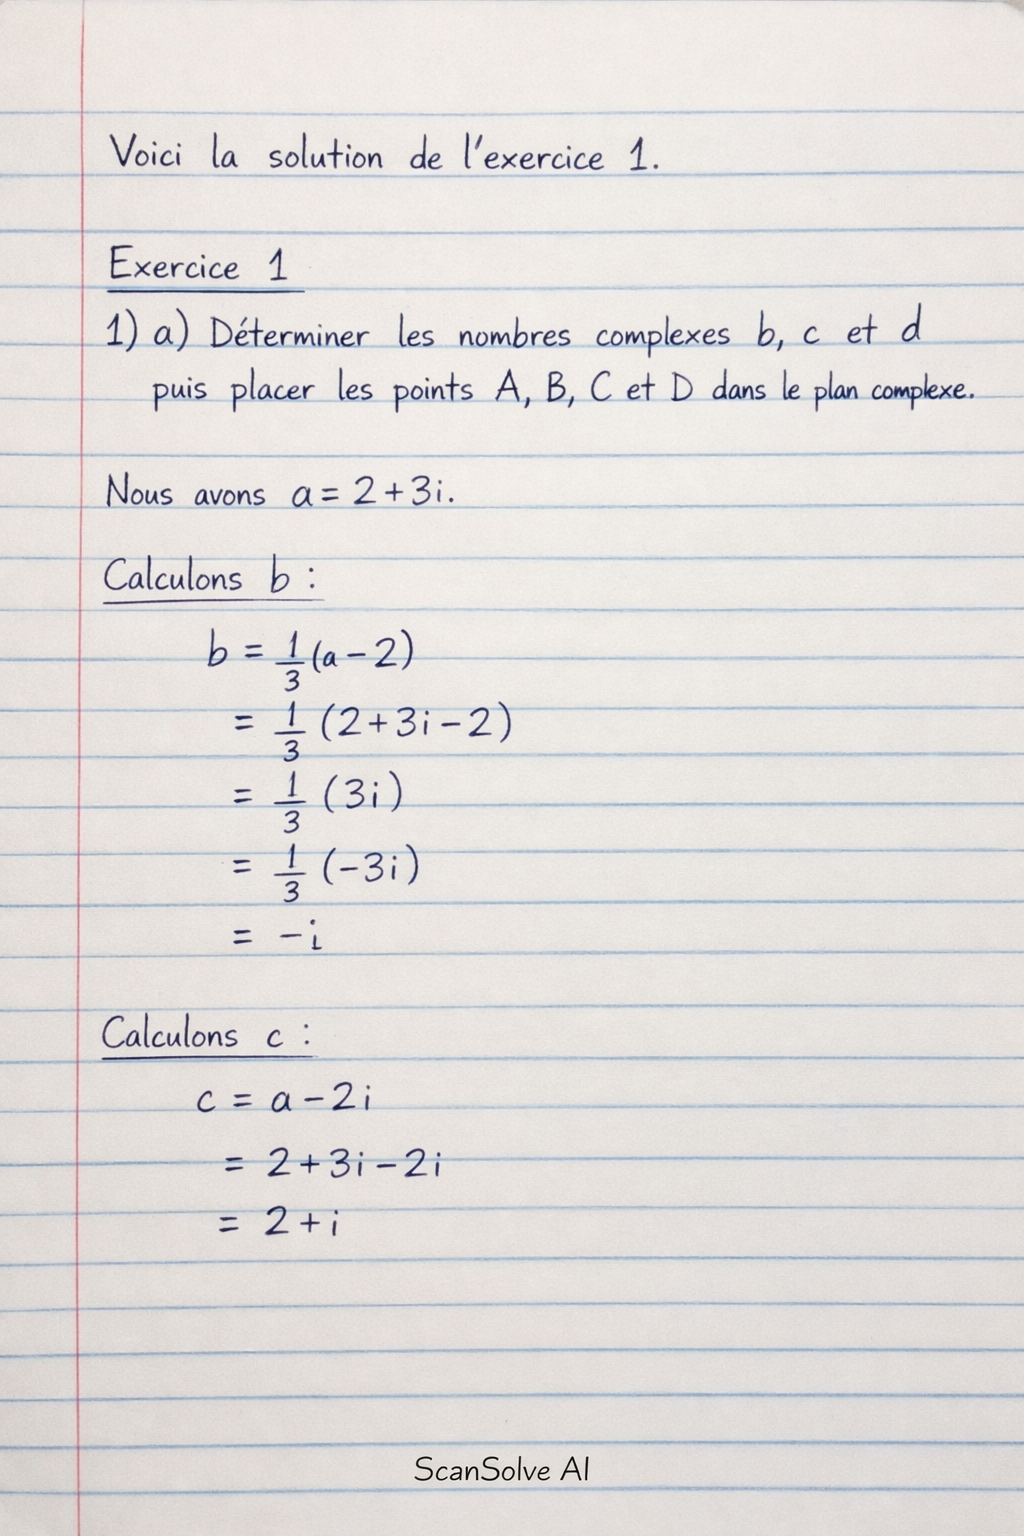 Voici la solution de l'exercice 1.
Exercice 1
1) a) Déterminer les nombres complexes b, c et d
puis placer les points A, B, C et D dans le plan complexe.
Nous avons a = 2 + 3i.
Calculons b :
b = 1/3 (a - 2)
= 1/3 (2 + 3i - 2)
= 1/3 (3i)
= 1/3 (-3i)
= -i
Calculons c :
c = a - 2i
= 2 + 3i - 2i
= 2 + i
ScanSolve AI